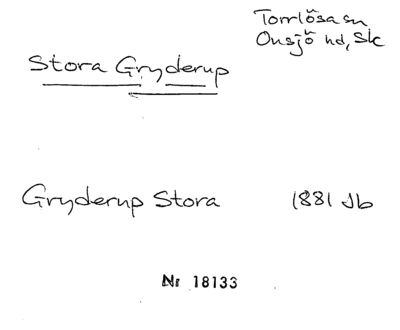 Torrlösa sn
Onsjö hd, Sk
Stora Gryderup
Gryderup Stora 1881 Jb
Nr 18133